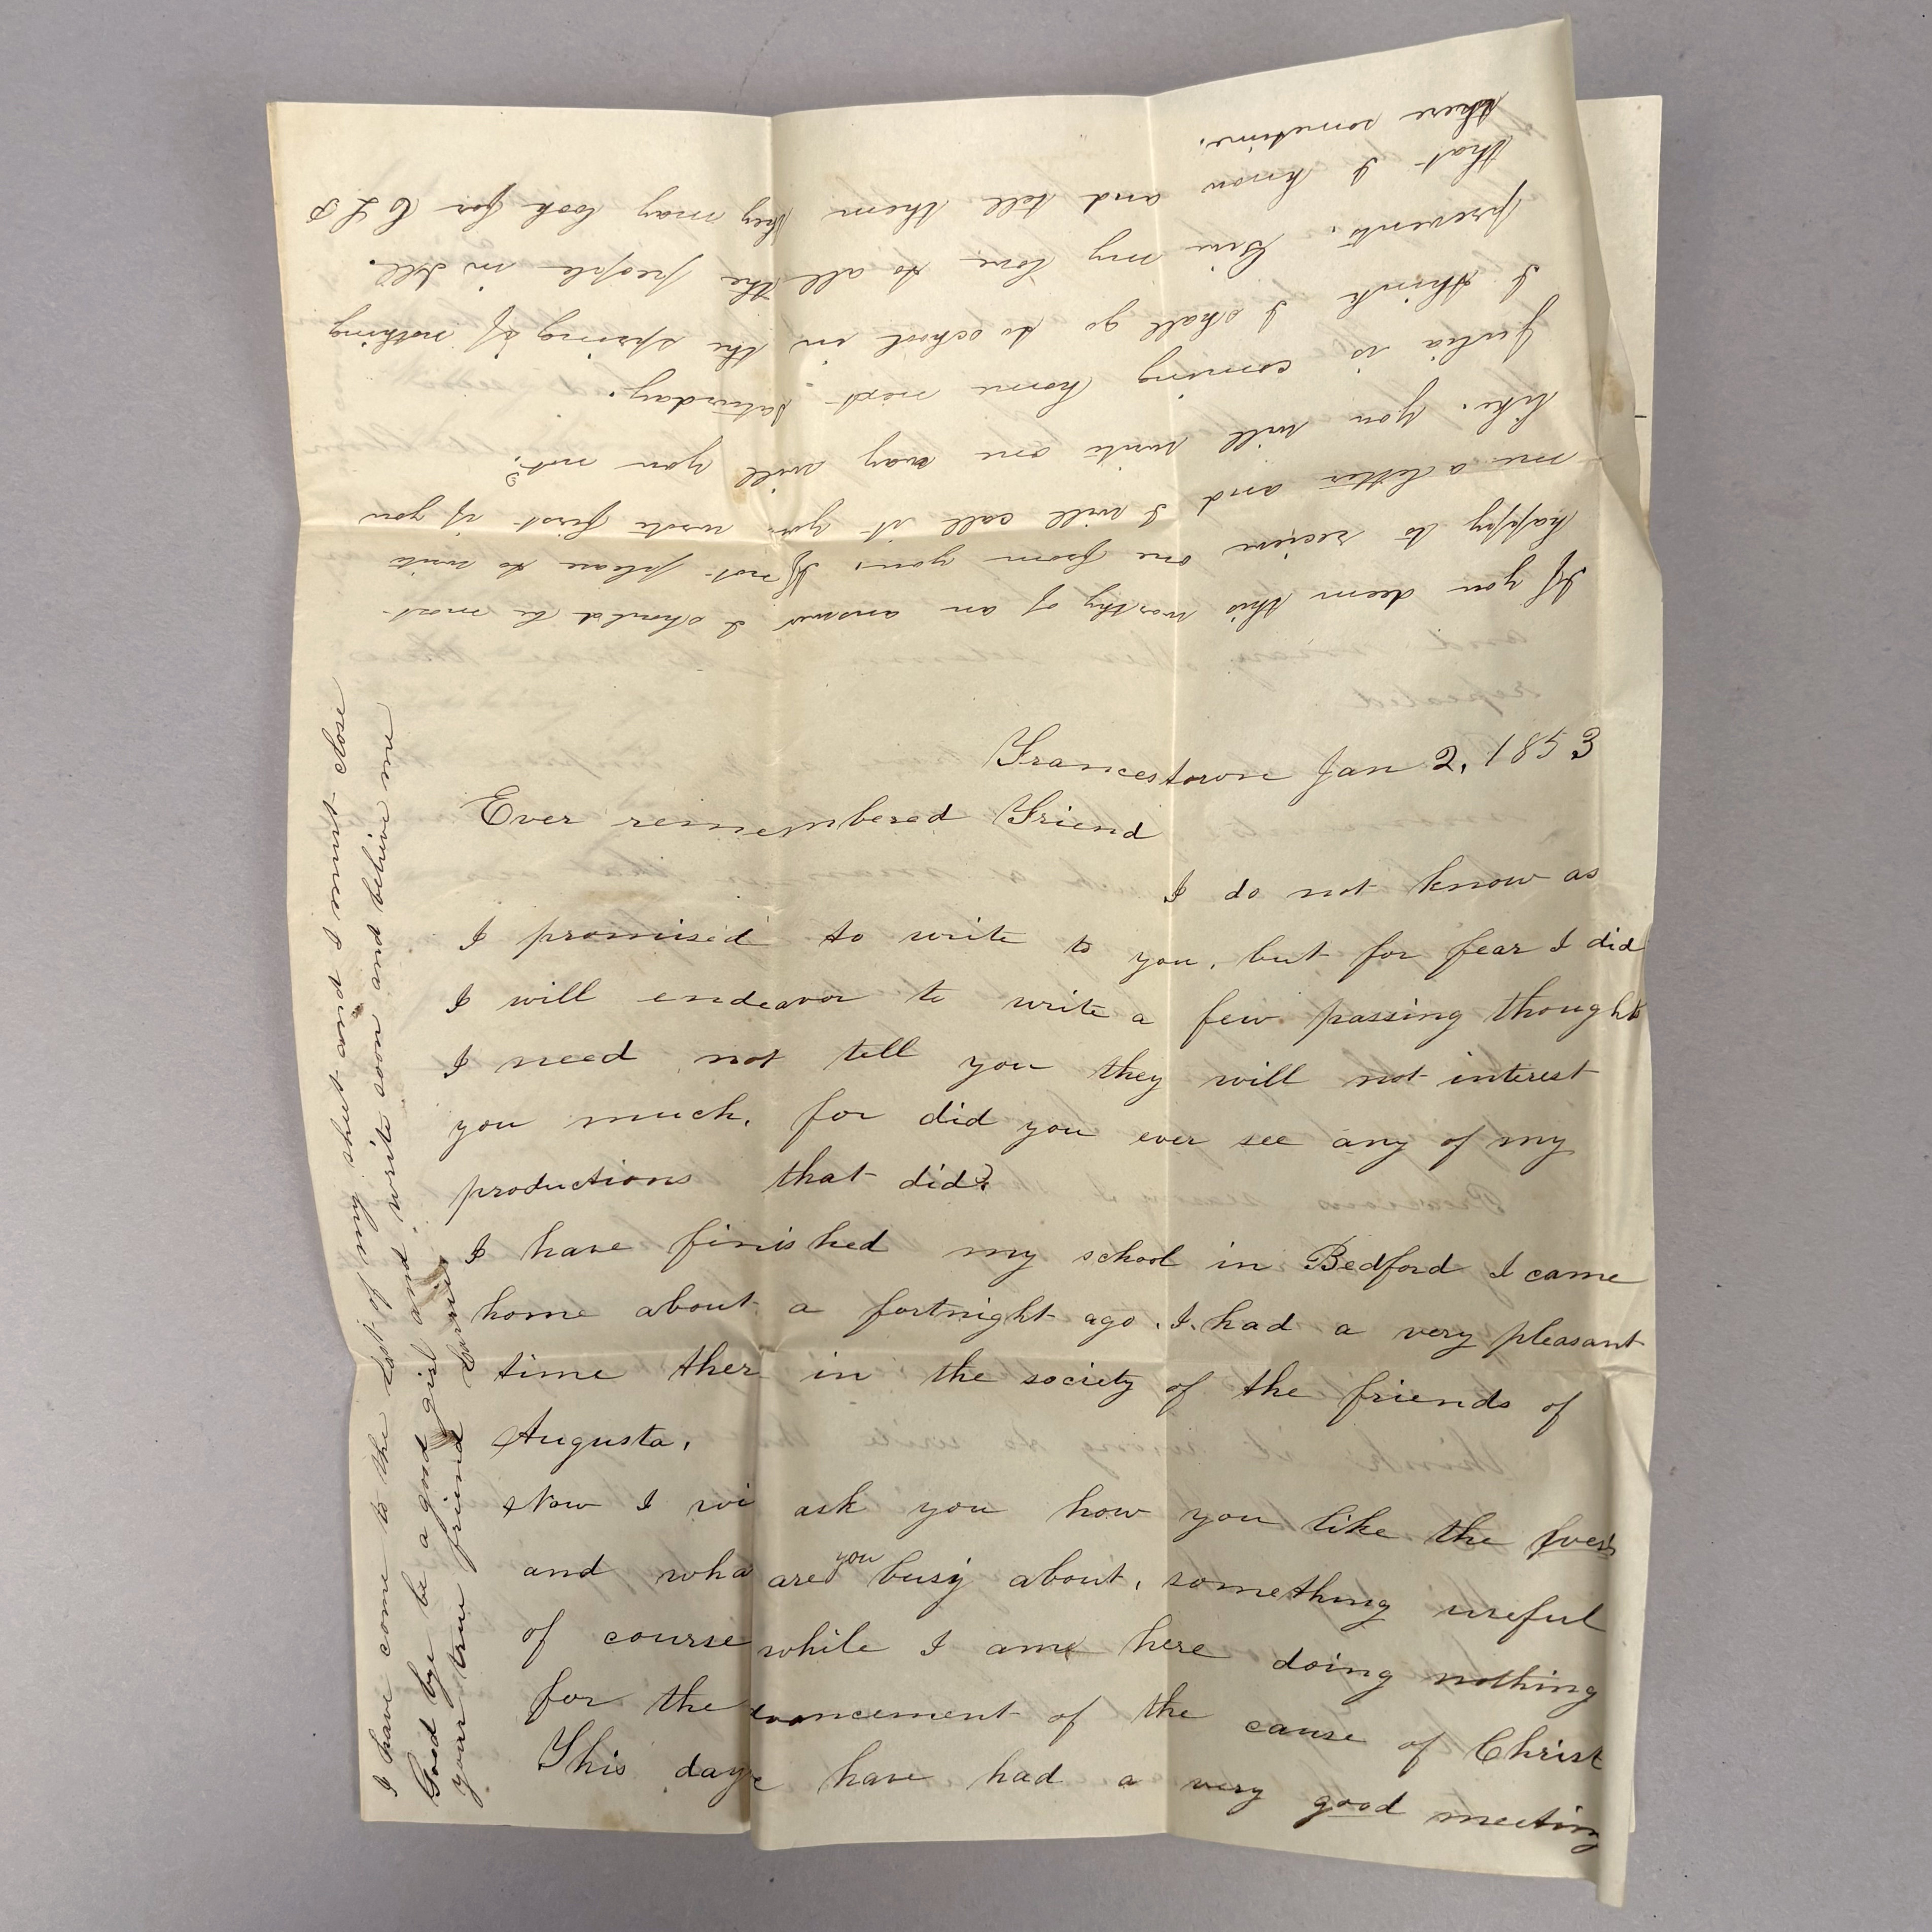 Francestown Jan 2, 1853
Ever remembered Friend
I do not know as
I promised to write to you, but for fear I did
I will endeavor to write a few passing thoughts
I need not tell you they will not interest
you much, for did you ever see any of my
productions that did?
I have finished my school in Bedford I came
home about a fortnight ago. I had a very pleasant
time ther in the society of the friends of
Augusta.
Now I wi ask you how you like the
and wha are you busy about, something useful
of course while I am here doing nothing
for the vancement of the cause of Christ
This day have had a very good meeting
If you deem this worthy of an answer I should be most
happy to recieve one from you, If not please to write
me a letter and I will call it you wrote first if you
like. You will write one way will you not?
Julia is coming home next saturday.
I think I shall go to school in the spring if nothing
prevents. Give my love to all the people in Ill.
that I know and tell them they may look for C L P
there sometime.
I have come to the last of my sheet and I must close
Good bye be a good girl and write soon and believe me
your true friend